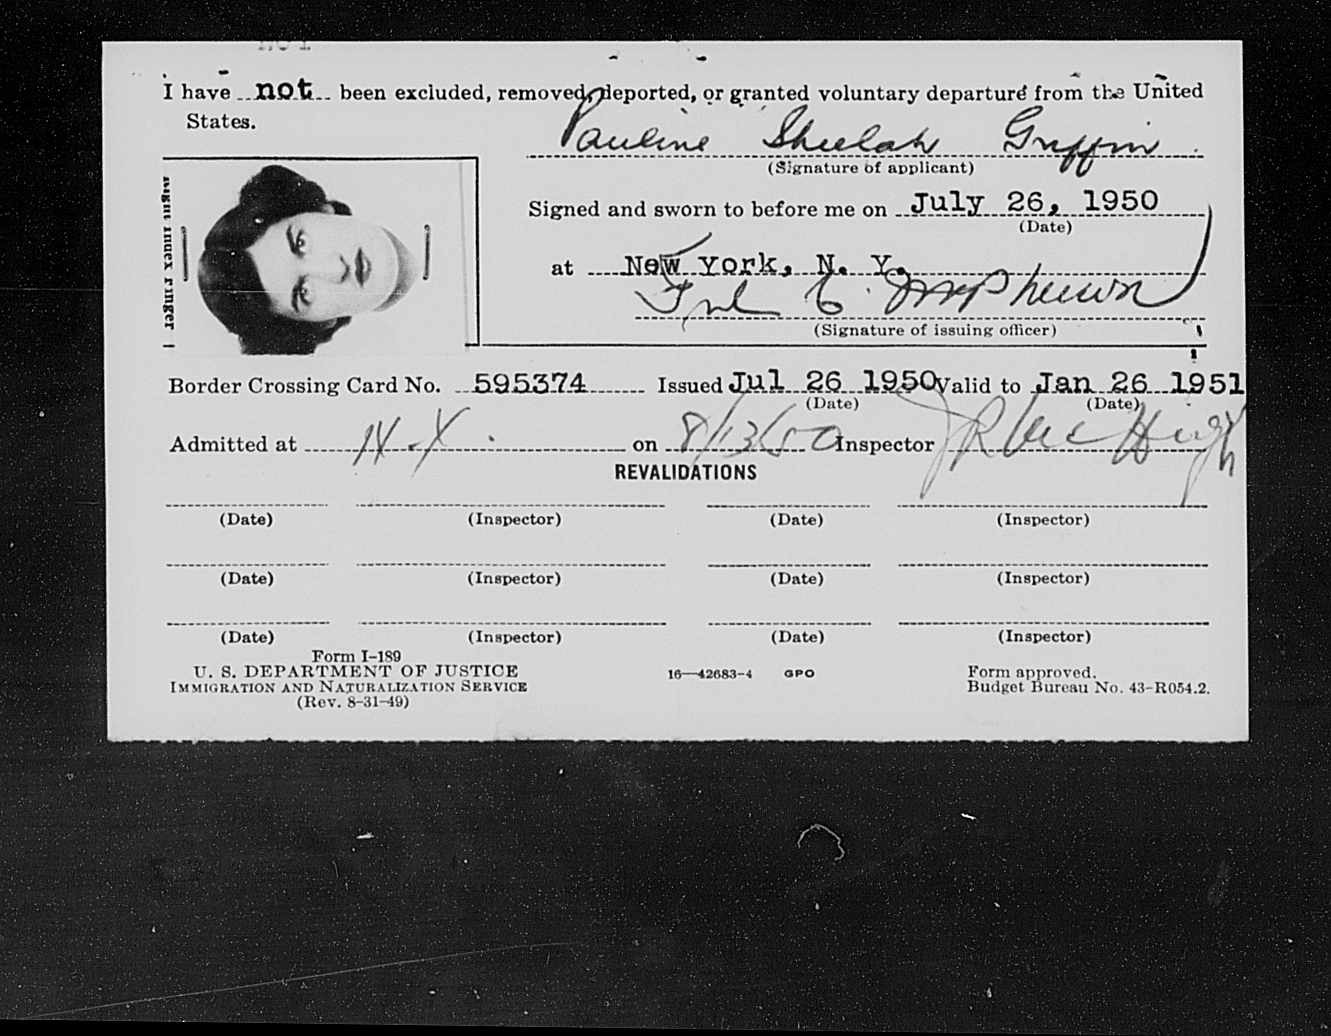 I have not been excluded, removed, deported, or granted voluntary departure from the United
States.
Pauline Sheelah Griffin
(Signature of applicant)
Signed and sworn to before me on July 26, 1950
(Date)
at New York, N. Y.
(Signature of issuing officer)
Right Index Finger
Border Crossing Card No. 595374 Issued Jul 26 1950 Valid to Jan 26 1951
(Date) (Date)
Admitted at on 8/13/50 Inspector
REVALIDATIONS
(Date) (Inspector) (Date) (Inspector)
(Date) (Inspector) (Date) (Inspector)
(Date) (Inspector) (Date) (Inspector)
Form I-189
U. S. DEPARTMENT OF JUSTICE
IMMIGRATION AND NATURALIZATION SERVICE
(Rev. 8-31-49)
16—42683-4 GPO
Form approved.
Budget Bureau No. 43-R054.2.